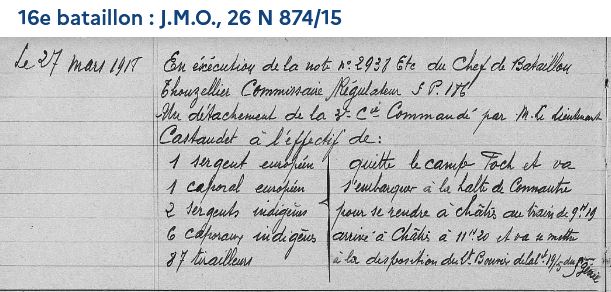 16e bataillon : J.M.O., 26 N 874/15
Le 27 mars 1917
En exécution de la note n° 2938 Etc du Chef de Bataillon
Thouzellier Commissaire Régulateur S.P. 186
Un détachement de la 3e Cie Commandé par M. le Lieutenant
Castaudet à l'effectif de :
1 sergent européen
1 caporal européen
2 sergents indigènes
6 caporaux indigènes
87 tirailleurs
quitte le camp Foch et va
s'embarquer à la halte de Connantre
pour se rendre à Châtis au train de 9h19
arrivé à Châtis à 11h20 et va se mettre
à la disposition du Lt Bouvier de la Cie 19/5 du Génie